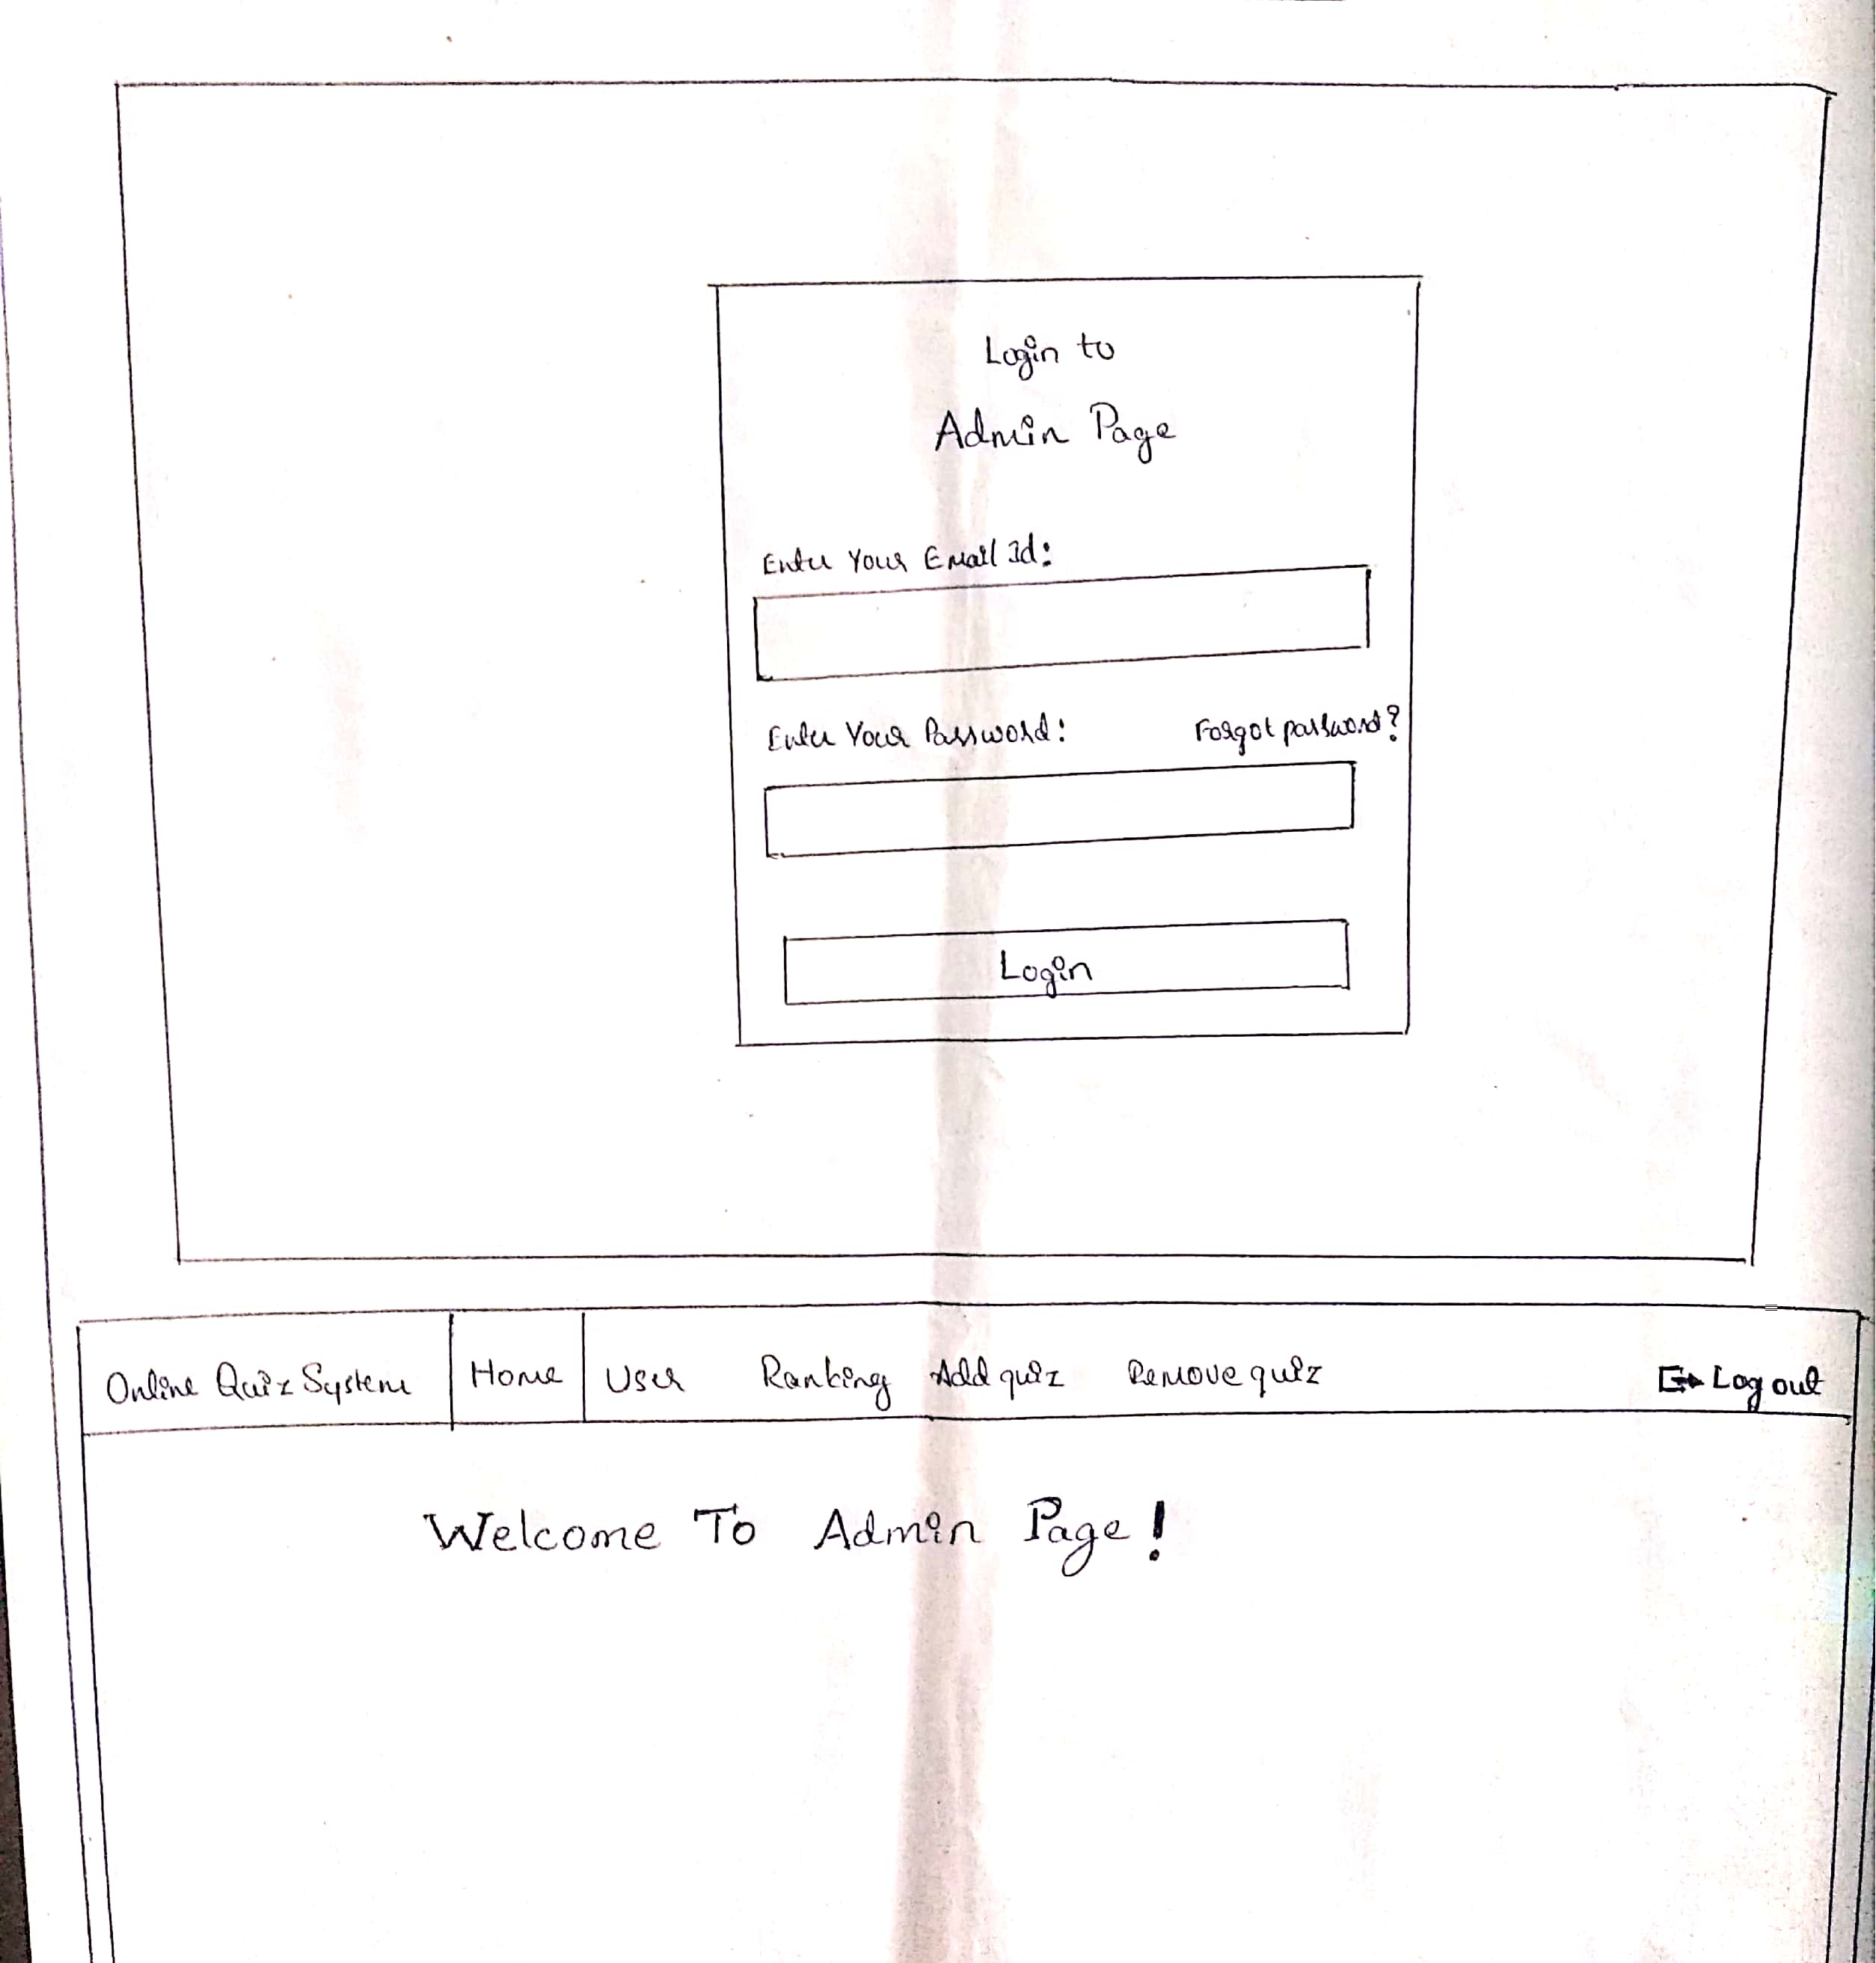 Login to
Admin Page
Enter Your Email Id:
Enter Your Password: Forgot password?
Login
Online Quiz System Home User Ranking Add quiz Remove quiz Log out
Welcome To Admin Page!